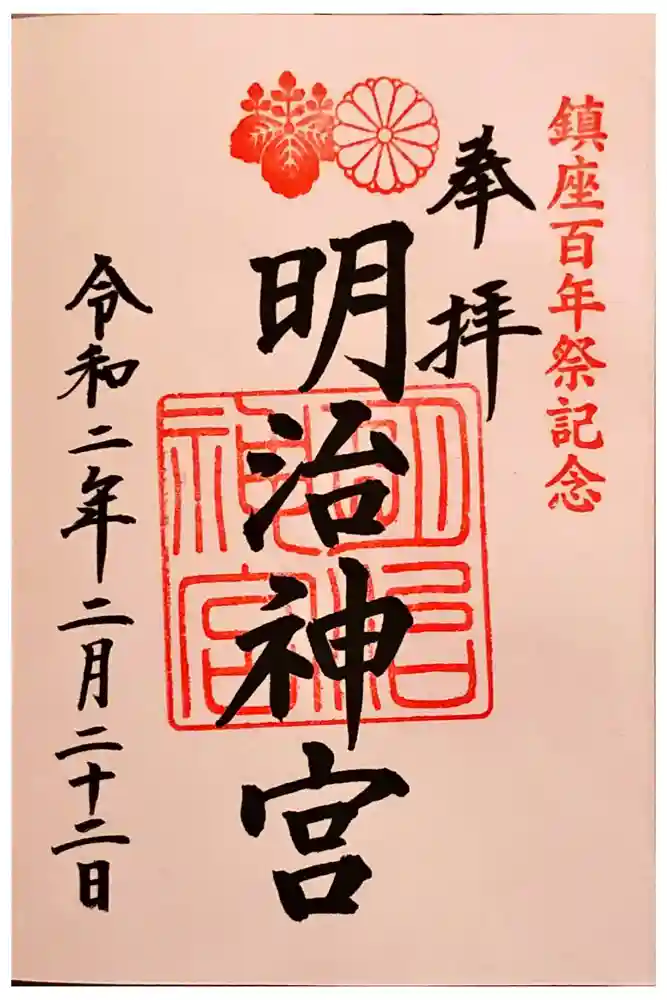 鎮座百年祭記念
奉拝
明治神宮
明治神宮
令和二年二月二十二日